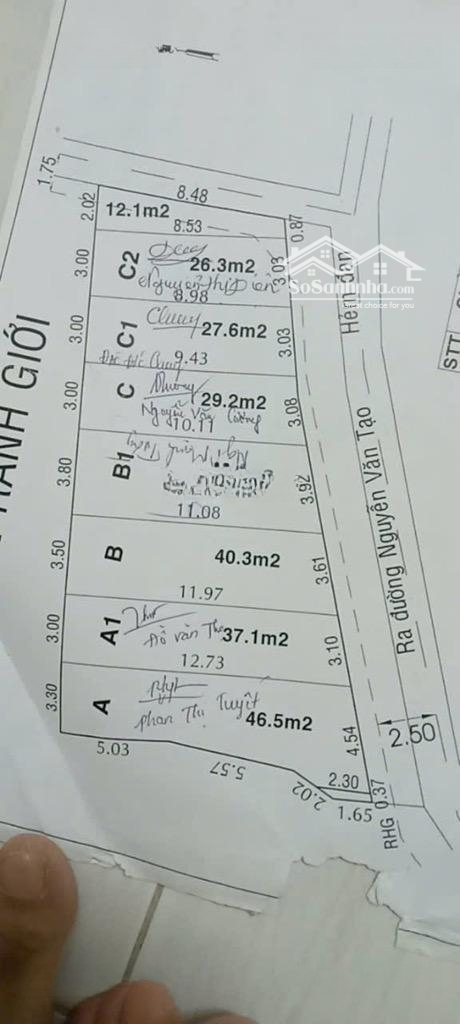 1.75
8.48
2.02
12.1m2
8.53
0.87
3.00
C2
26.3m2
3.03
8.98
SoSanhnha.com
Best choice for you
Hẻm đan
3.00
C1
27.6m2
3.03
9.43
RANH GIỚI
STT
3.00
C
29.2m2
3.08
Nguyễn Văn Cường
10.11
3.80
B1
3.92
11.08
Ra đường Nguyễn Văn Tạo
3.50
B
40.3m2
3.61
11.97
3.00
A1
Đỗ Văn Thơ
37.1m2
3.10
12.73
3.30
A
Phan Thị Tuyết
46.5m2
4.54
2.50
5.03
5.57
2.02
2.30
1.65
0.37
RHG